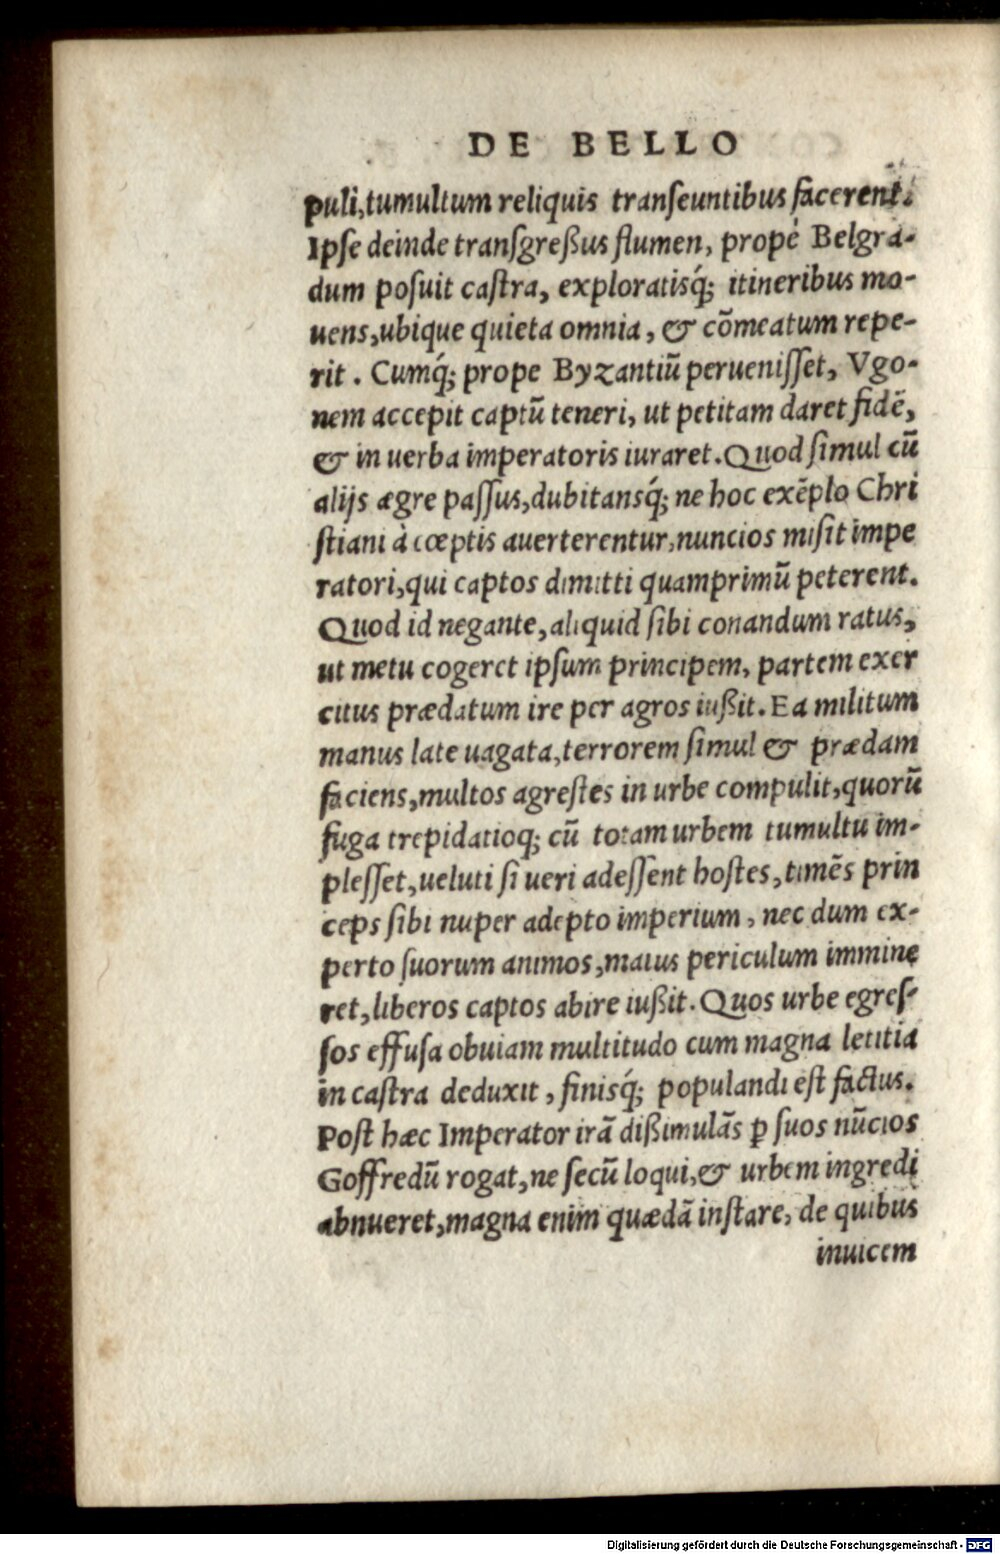 DE BELLO
puli, tumultum reliquis transeuntibus facerent.
Ipse deinde transgreßus flumen, propè Belgra-
dum posuit castra, exploratisq́; itineribus mo-
uens, ubique quieta omnia, & cōmeatum repe-
rit. Cumq́; prope Byzantiū peruenisset, Vgo-
nem accepit captū teneri, ut petitam daret fidē,
& in uerba imperatoris iuraret. Quod simul cū
alijs ægre passus, dubitansq́; ne hoc exēplo Chri
stiani à cœptis auerterentur, nuncios misit impe
ratori, qui captos dimitti quamprimū peterent.
Quod id negante, aliquid sibi conandum ratus,
ut metu cogeret ipsum principem, partem exer
citus prædatum ire per agros iußit. Ea militum
manus late uagata, terrorem simul & prædam
faciens, multos agrestes in urbe compulit, quorū
fuga trepidatioq; cū totam urbem tumultu im-
plesset, ueluti si ueri adessent hostes, timēs prin
ceps sibi nuper adepto imperium, nec dum ex-
perto suorum animos, maius periculum immine
ret, liberos captos abire iußit. Quos urbe egres-
sos effusa obuiam multitudo cum magna letitia
in castra deduxit, finisq́; populandi est factus.
Post hæc Imperator irā dißimulās ꝑ suos nūcios
Goffredū rogat, ne secū loqui, & urbem ingredi
abnueret, magna enim quædā instare, de quibus
inuicem
Digitalisierung gefördert durch die Deutsche Forschungsgemeinschaft - DFG